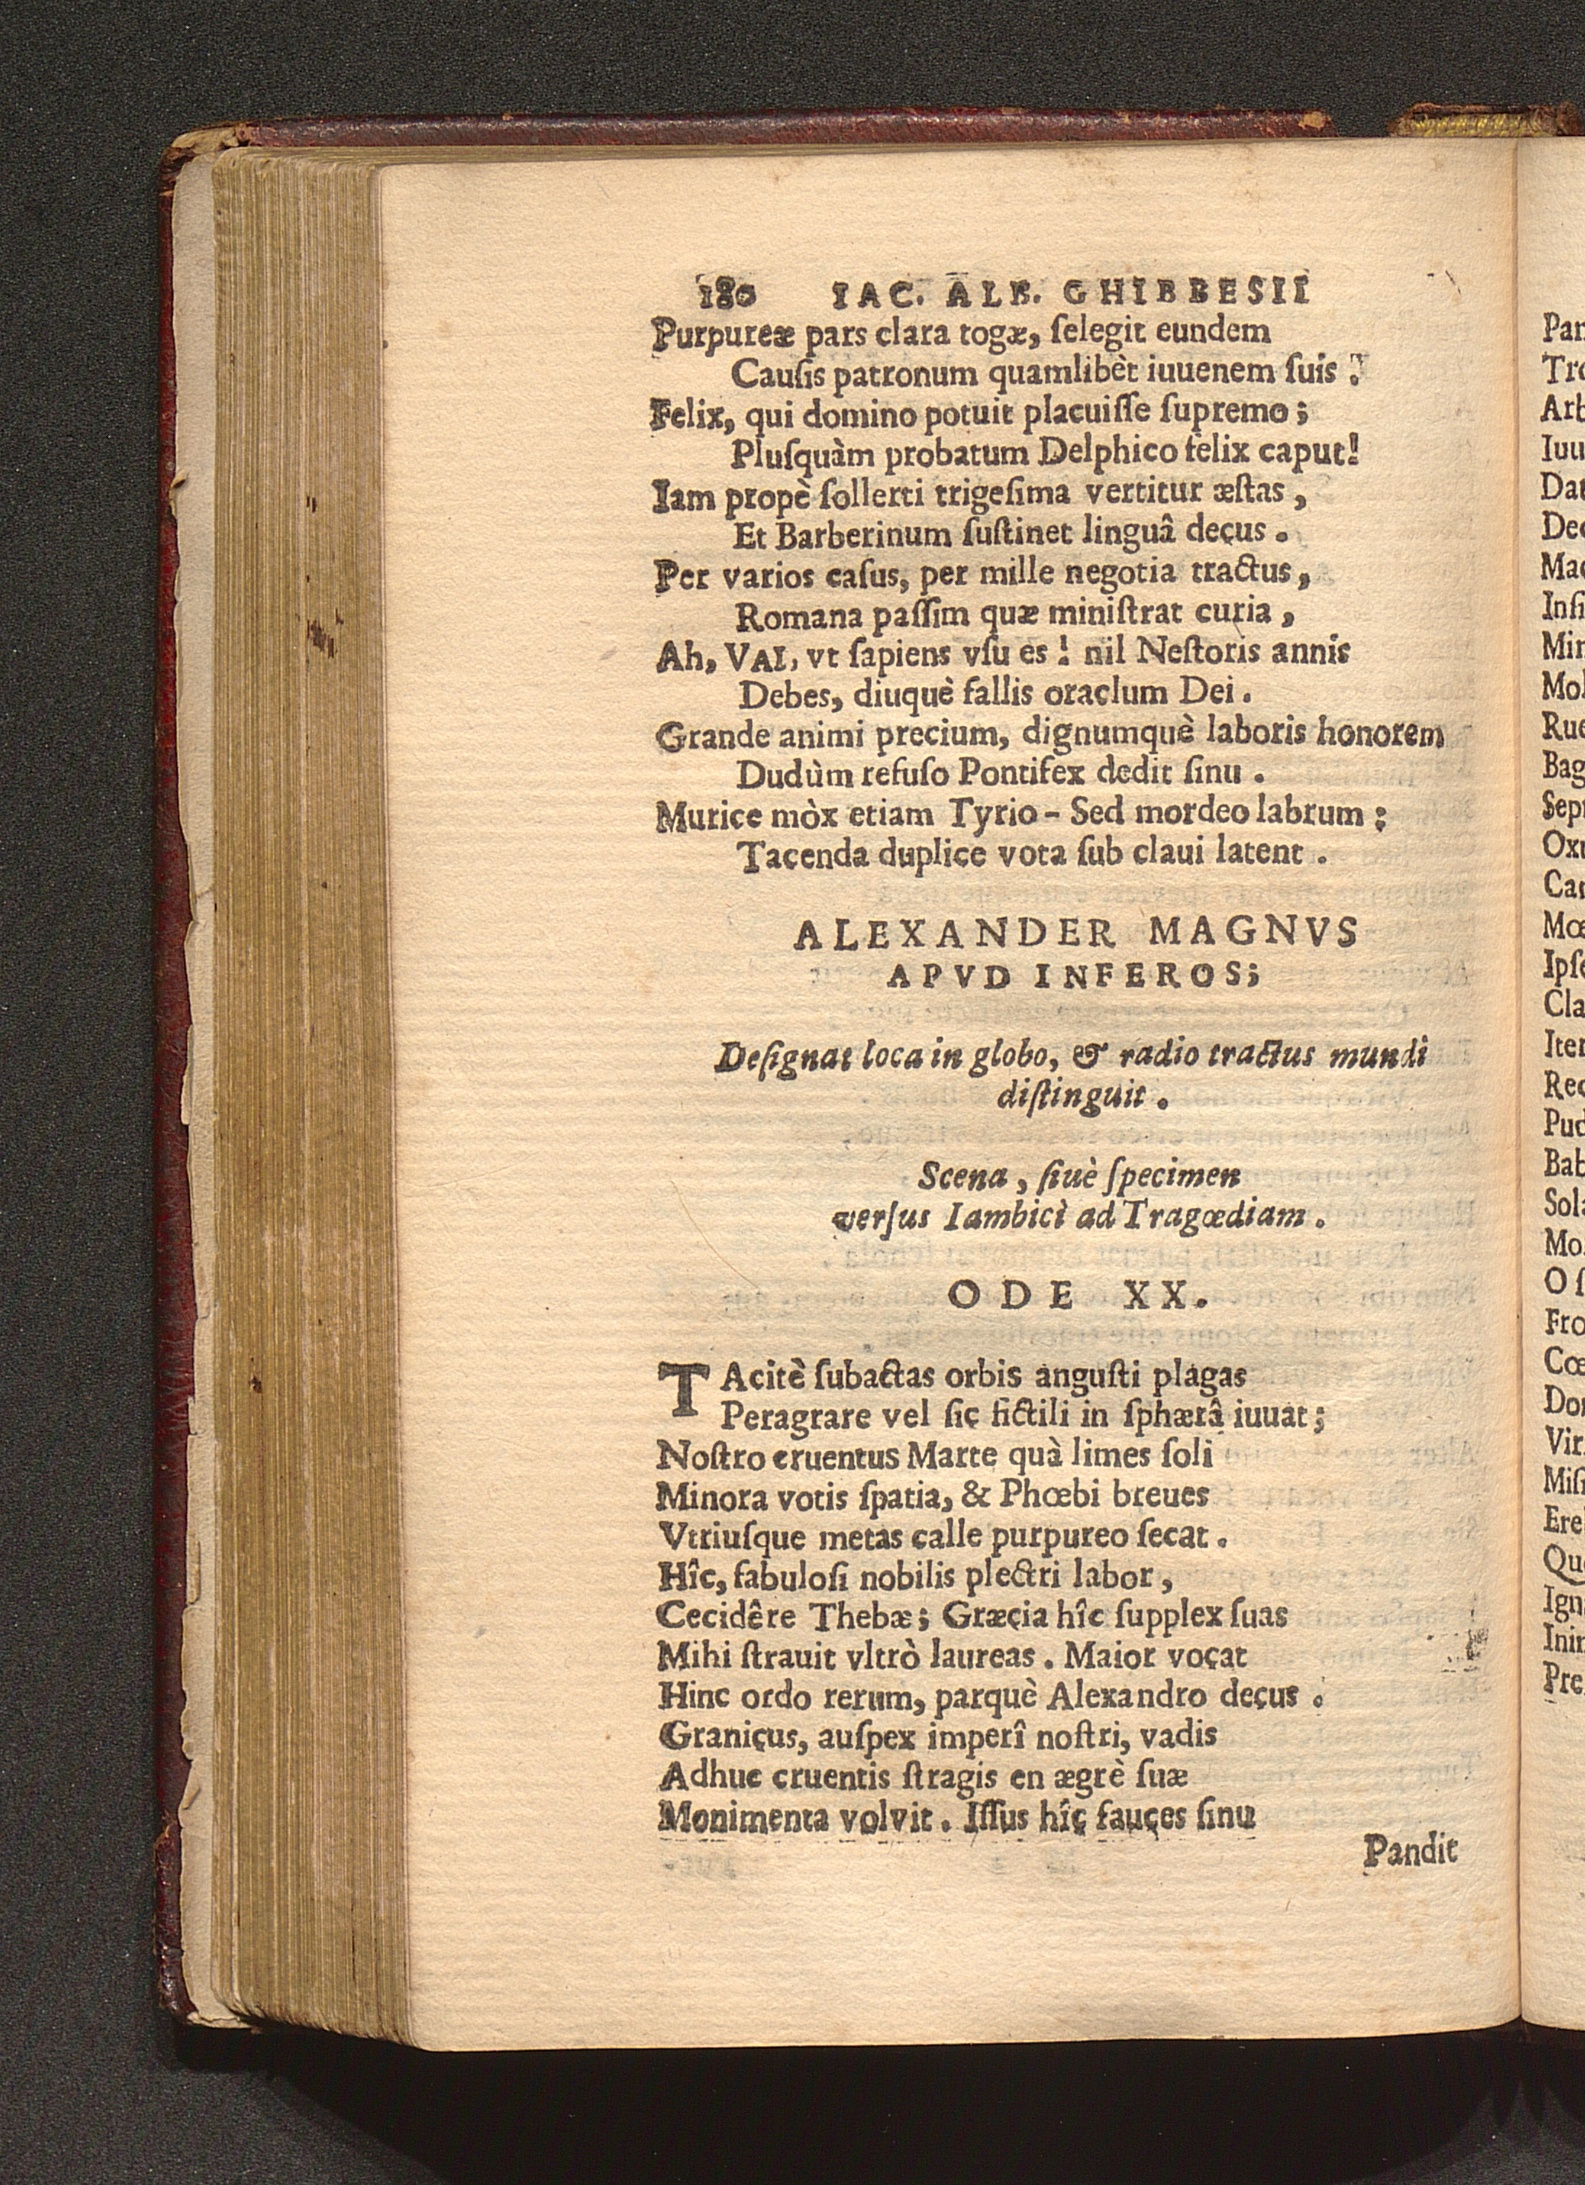 180 IAC. ALB. GHIBBESII
Purpureæ pars clara togæ, ſelegit eundem
Cauſis patronum quamlibèt iuuenem ſuis.
Felix, qui domino potuit placuiſſe ſupremo;
Pluſquàm probatum Delphico felix caput!
Iam propè ſollerti trigeſima vertitur æſtas,
Et Barberinum ſuſtinet linguâ decus.
Per varios caſus, per mille negotia tractus,
Romana paſſim quæ miniſtrat curia,
Ah, VAI, vt ſapiens vſu es! nil Neſtoris annis
Debes, diuquè fallis oraclum Dei.
Grande animi precium, dignumquè laboris honorem
Dudùm refuſo Pontifex dedit ſinu.
Murice mòx etiam Tyrio - Sed mordeo labrum;
Tacenda duplice vota ſub claui latent.
ALEXANDER MAGNVS
APVD INFEROS;
Deſignat loca in globo, & radio tractus mundi
diſtinguit.
Scena, ſiuè ſpecimen
verſus Iambici ad Tragœdiam.
ODE XX.
TAcitè ſubactas orbis anguſti plagas
Peragrare vel ſic fictili in ſphærâ iuuat;
Noſtro cruentus Marte quà limes ſoli
Minora votis ſpatia, & Phœbi breues
Vtriuſque metas calle purpureo ſecat.
Hîc, fabuloſi nobilis plectri labor,
Cecidêre Thebæ; Græcia hîc ſupplex ſuas
Mihi ſtrauit vltrò laureas. Maior vocat
Hinc ordo rerum, parquè Alexandro decus.
Granicus, auſpex imperî noſtri, vadis
Adhuc cruentis ſtragis en ægrè ſuæ
Monimenta volvit. Iſſus hîc fauces ſinu
Pandit